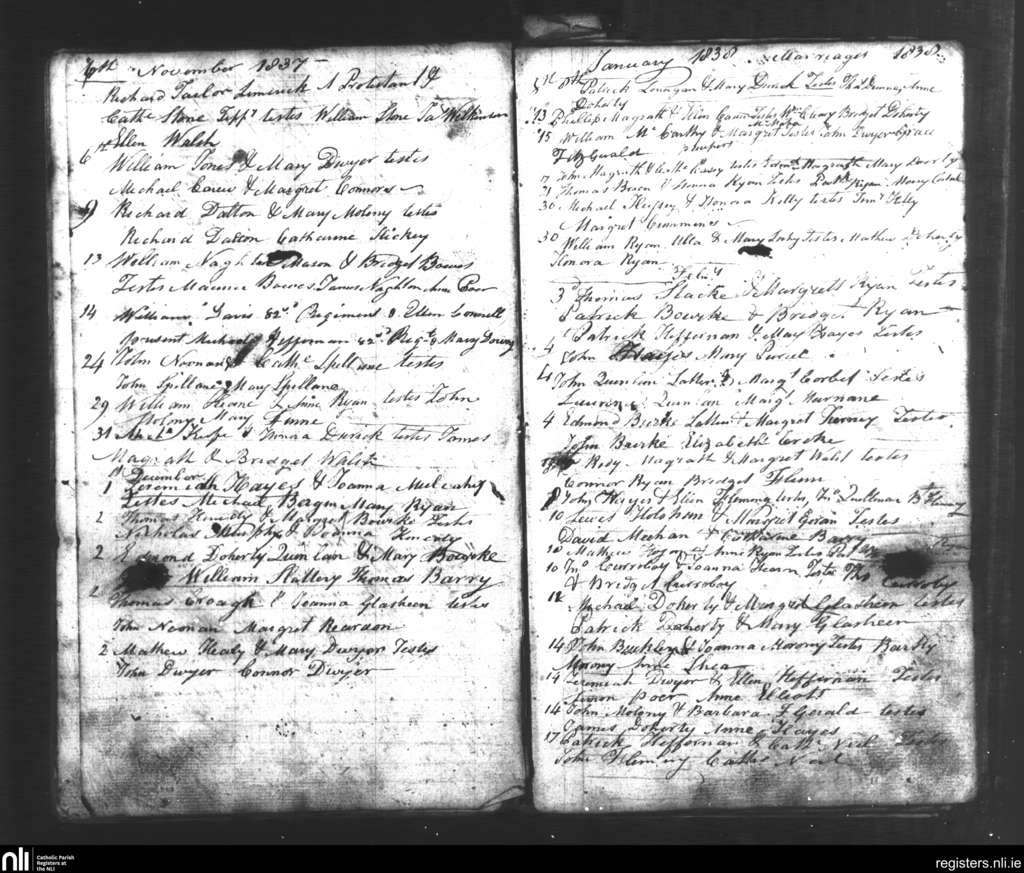 6th November 1837
Richard Taylor Limerick A Protestant &
Cathe Stone Tipp testes William Stone Jas Wilkinson
Ellen Walsh
6 William Jones & Mary Dwyer testes
Michael Carew & Margret Connors
9 Richard Dalton & Mary Molony testes
Richard Dalton Catharine Hickey
13 William Mason & Bridget Bowes
Testes Maurice Bowes James Naghton Poer
14 William Davis 82d Regiment & Ellen Connell
present Michael Heffernan 82d Regt & Mary
24 John Noonan & Cathe Spellane testes
John Spellane & Mary Spellane
29 William Keane & Anne Ryan testes John
Molony Mary Finne
31 & Honora Cusack testes James
Magrath & Bridget Walsh
December
1st Jeremiah Hayes & Joanna Mulcahy
Testes Michael Mary Ryan
2 Thomas Kennedy & Margret Bourke Testes
Nicholas Murphy & Joanna Kennedy
2 Edmond Doherty Quinlan & Mary Bourke
William Slattery Thomas Barry
2 Thomas Croagh & Joanna Glasheen testes
John Noonan Margret Reardon
2 Mathew Healy & Mary Dwyer Testes
John Dwyer Connor Dwyer
January 1838 Marriages 1838
Patrick Lonagan & Mary Cusack Testes Anne
Doherty
13 Phillip Magrath & Ellen Testes Wm Bridget Doherty
15 William McCarthy & Margret Testes John Dwyer Grace
Fitzgerald paupers
17 John Magrath & testes Magrath Mary
21 Thomas Bowen & Honora Ryan Testes Ryan Mary
30 Michael & Honora Kelly testes Kelly
Margret
30 William Ryan Ulla & Mary Testes Mathew Doherty
Honora Ryan
Feby
3d Thomas Slacke & Margrett Ryan Testes
Patrick Bourke & Bridget Ryan
4 Patrick Heffernan & Mary Hayes Testes
John Hayes Mary Purcel
4 John Quinlan Latten & Margt Corbet Testes
Quinlan Margt Murnane
4 Edmond Burke Latten & Margret Testes
John Burke Elizabeth
Rody Magrath & Margret Walsh testes
Connor Ryan Bridget
8 John Hayes & Ellen Flemong testes, Thos Quillinan Bt Flemong
10 Lewis & Margret Testes
David Meehan & Catherine Barry
10 Mathew & Anne Ryan Testes Pat
10 Jno Curroboy & Joanna Testes Thos Curroboy
& Bridget Curroboy
12 Michael Doherty & Margret Glasheen testes
Patrick Doherty & Mary Glasheen
14 John Buckley & Joanna Morony Testes
Morony Anne Shea
14 Jeremiah Dwyer & Ellen Heffernan Testes
Poer Anne Elliott
14 John Molony & Barbara FGerald testes
James Doherty Anne Hayes
17 Patrick Heffernan & Cathe Neil Testes
John Fleming Cathe Neil
nli
Catholic Parish
Registers at
the NLI
registers.nli.ie